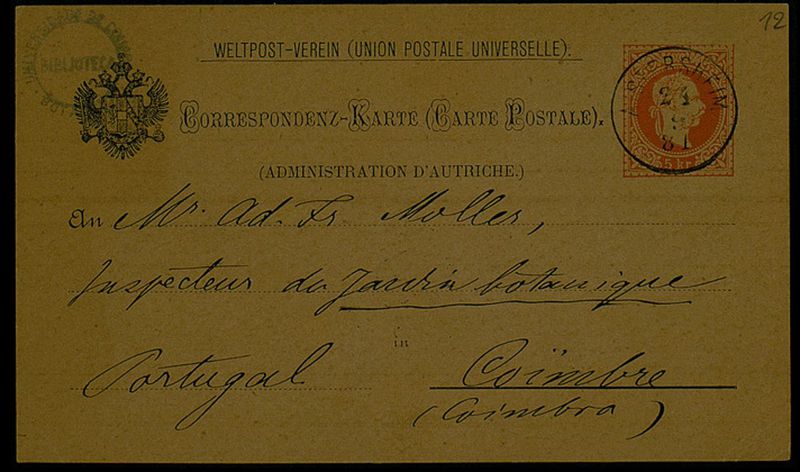 12
UNIVERSIDADE DE COIMBRA
BIBLIOTECA
BOT
WELTPOST-VEREIN (UNION POSTALE UNIVERSELLE).
CORRESPONDENZ-KARTE (CARTE POSTALE).
(ADMINISTRATION D'AUTRICHE.)
5 kr
21
81
An Mr. Ad. Fr. Moller,
Inspecteur du Jardin botanique
in
Portugal Coïmbre
(Coimbra)